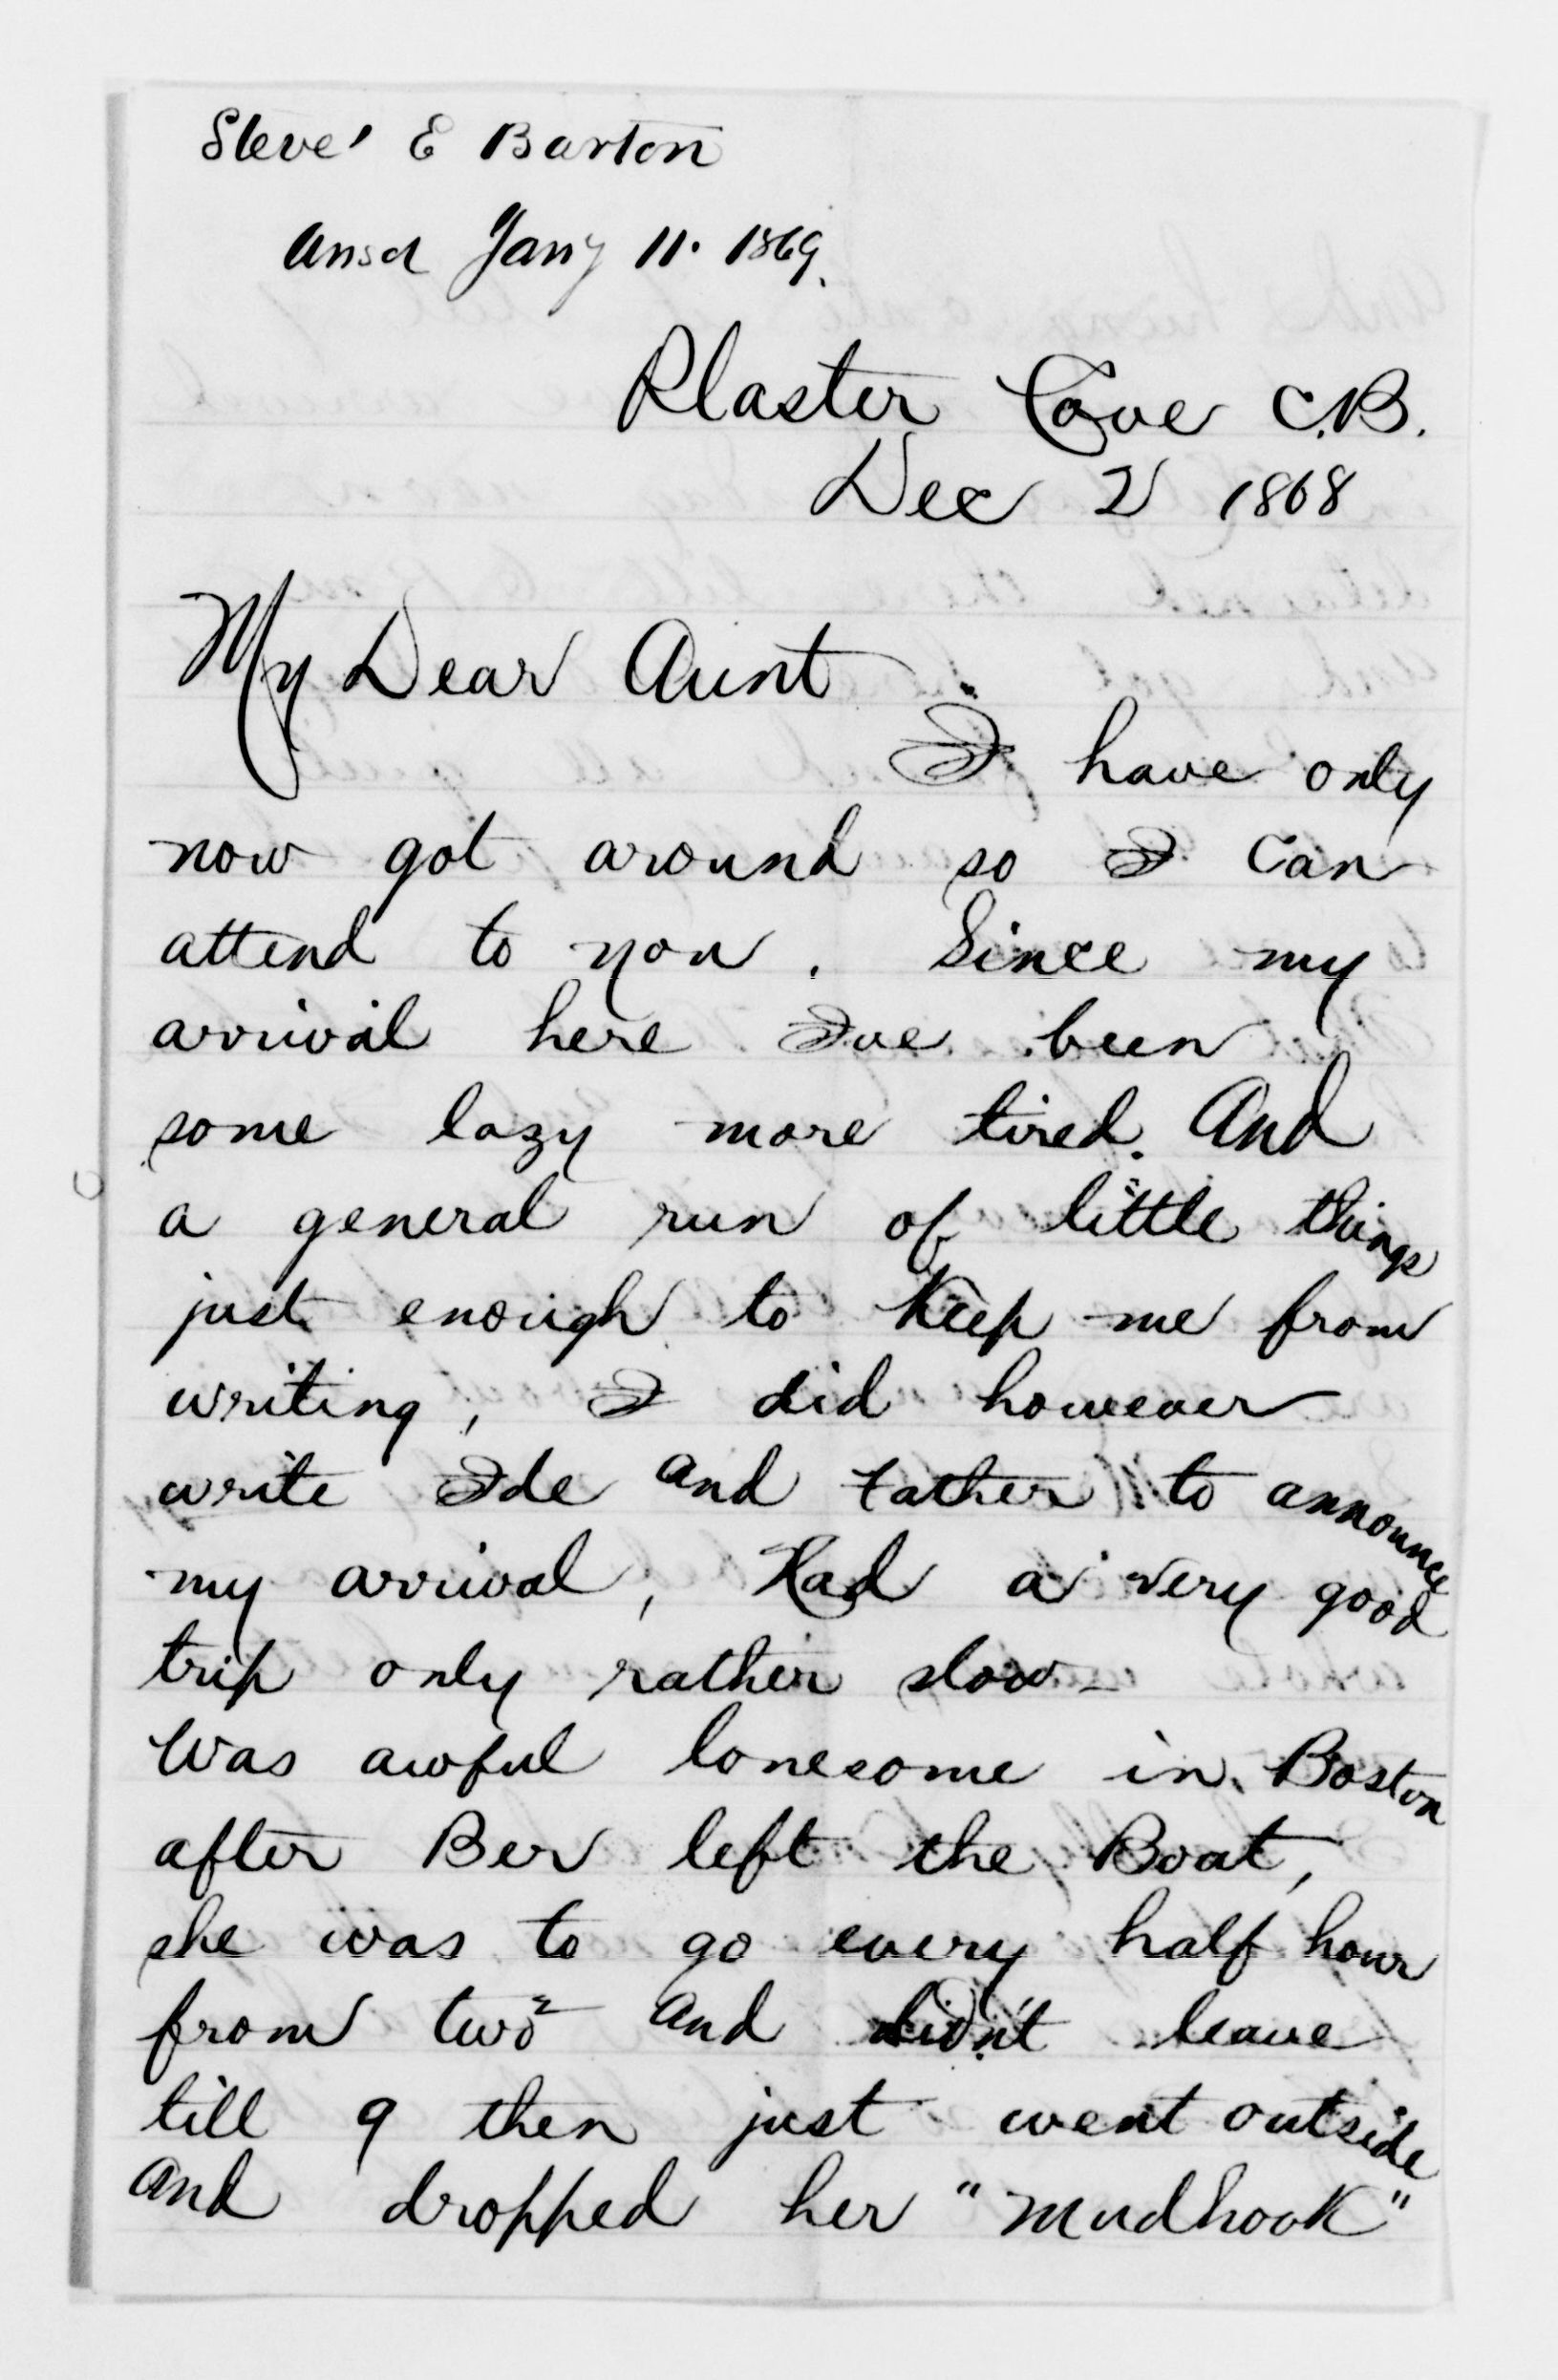 Steve' E Barton
Ansd Jany 11. 1869.
Plaster Cove C.B.
Dec 2 1868
My Dear Aunt
I have only
now got around so I can
attend to you. Since my
arrival here Ive been
some lazy more tired. And
a general run of little things
just enough to keep me from
writing, I did however
write Ide and Father to announce
my arrival, Had a very good
trip only rather slow
Was awful lonesome in Boston
after Ber left the Boat,
she was to go every half hour
from two and didn't leave
till 9 then just went outside
and dropped her "mudhook"